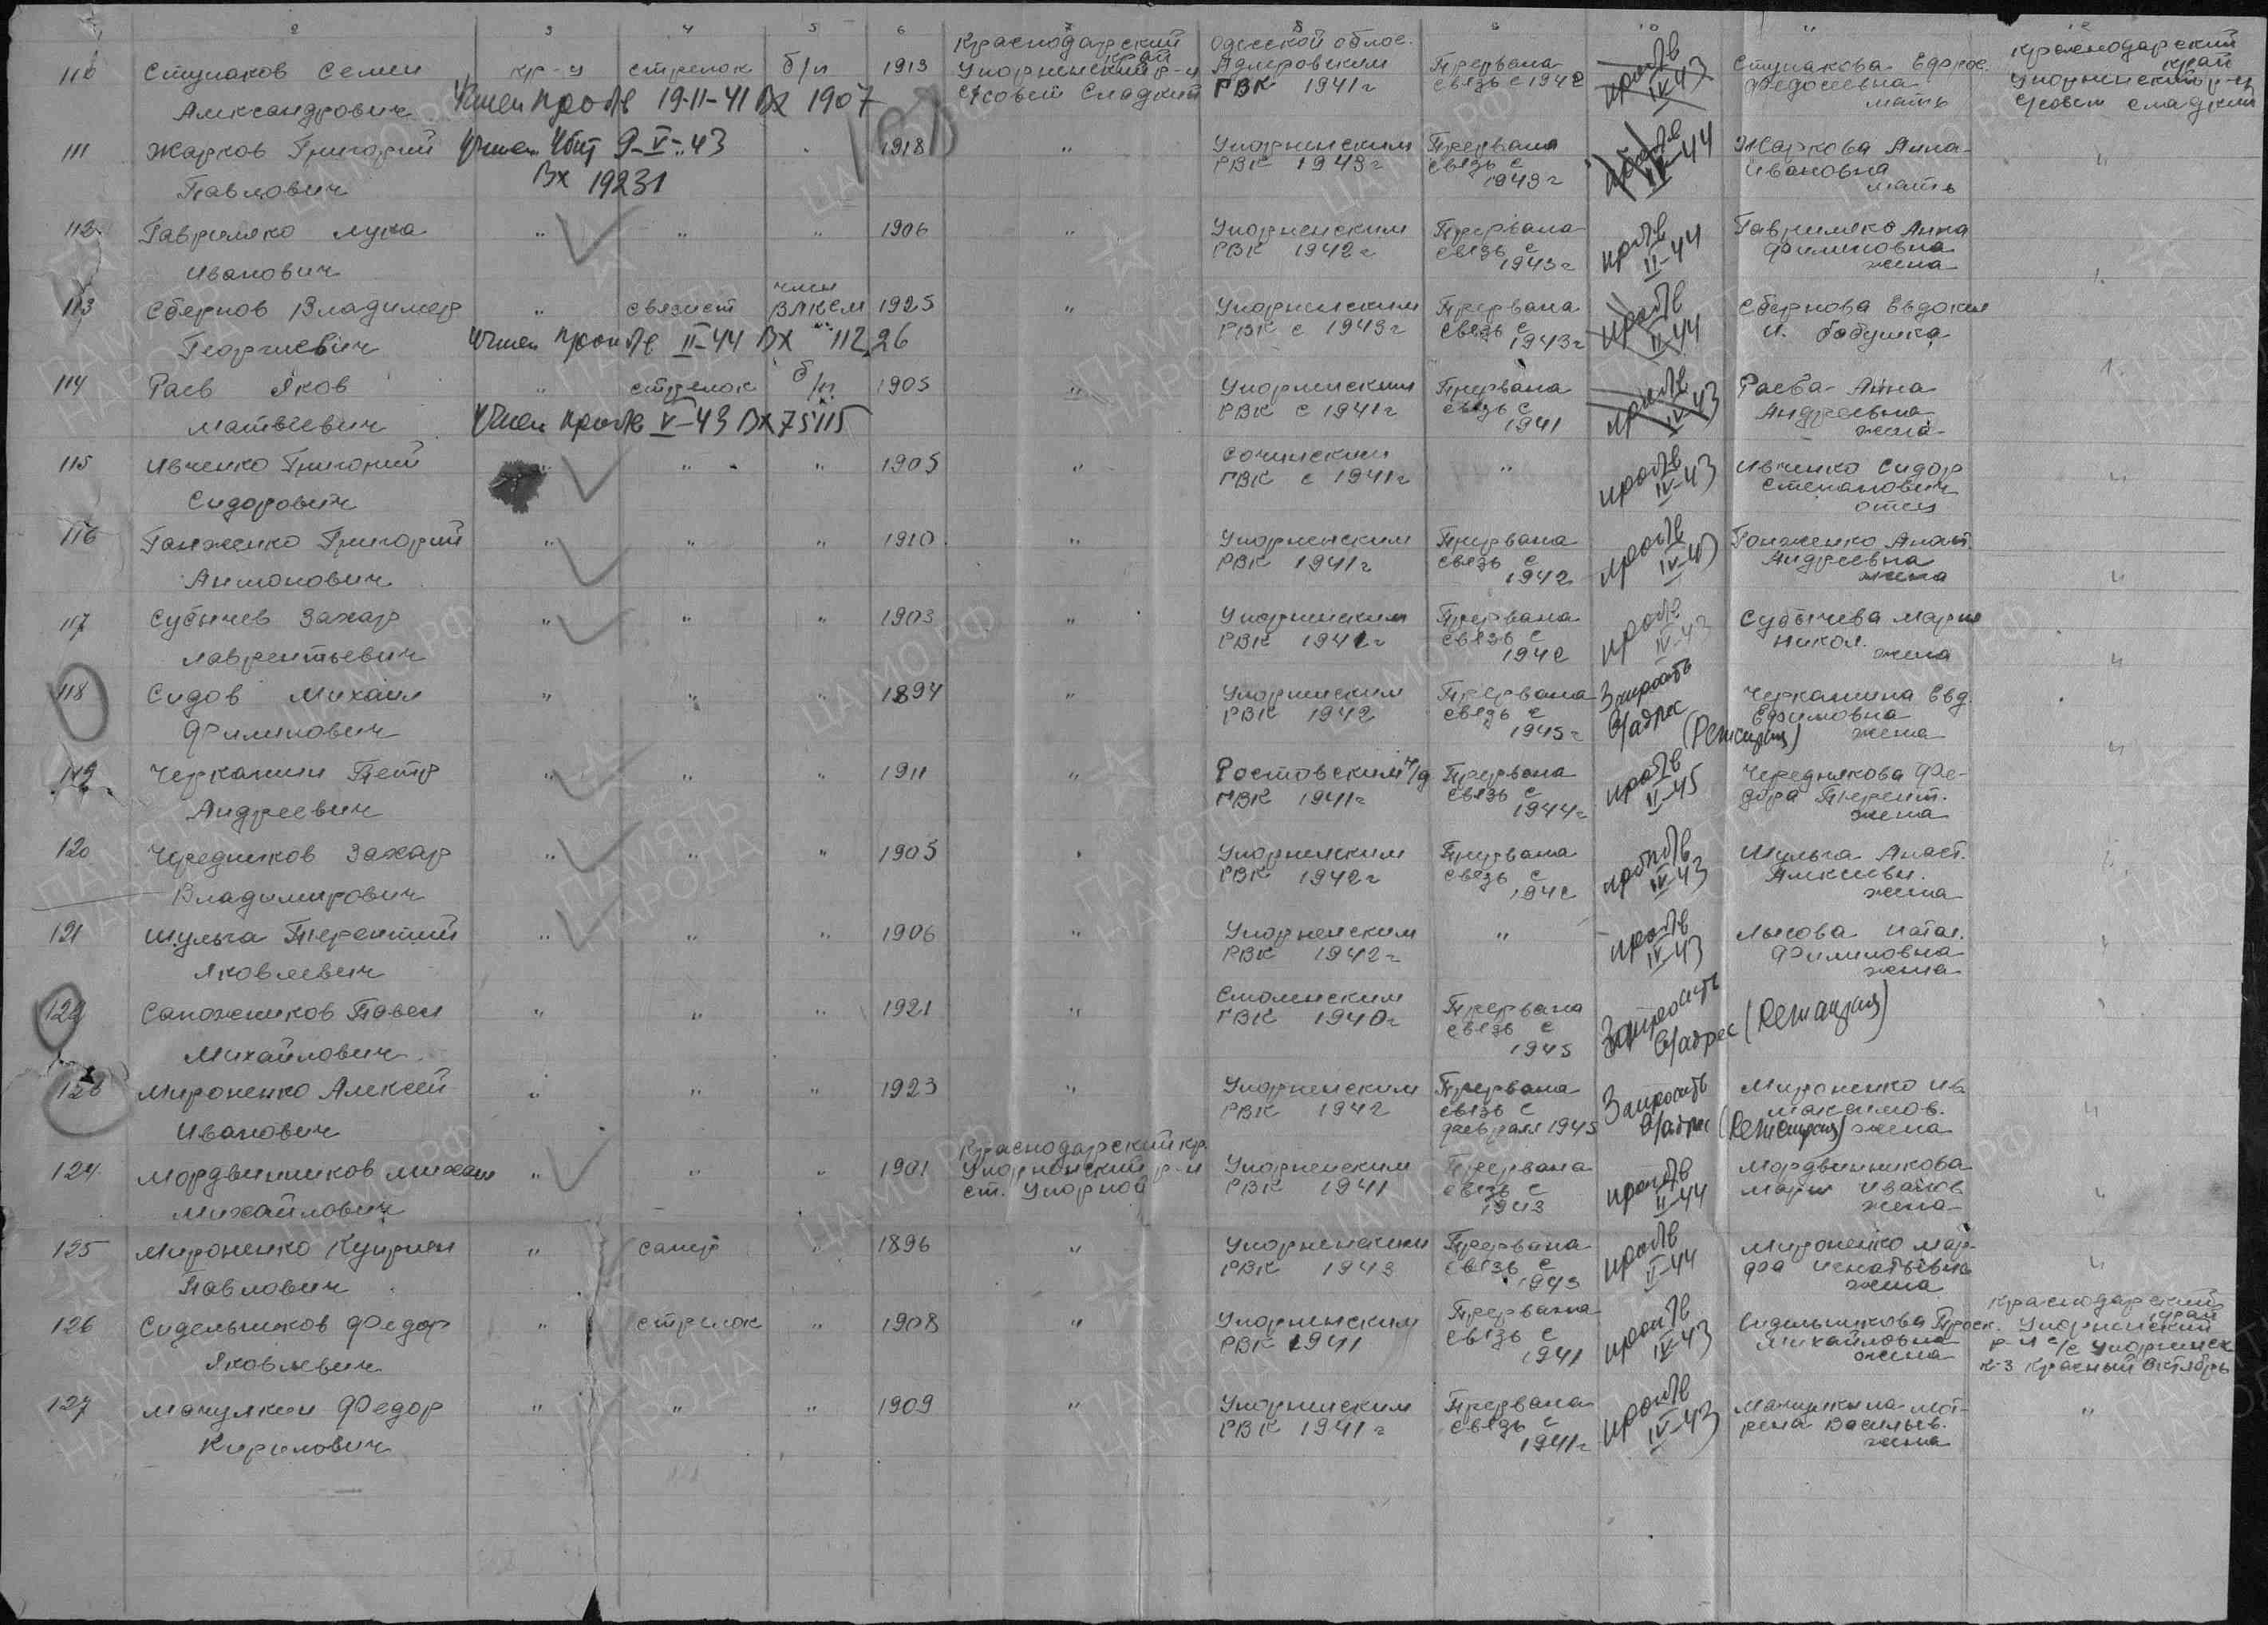 2 3 4 5 6 7 8 9 10 11 12
110 Ступаков Семен Александрович кр-ц стрелок б/п 1913 Краснодарский край Упорненский р-н с/совет Сладкий Одесской облос. РВК 1941 г Прервана связь с 1942 проп б/в IV-43 Ступакова Ефрос. Федосеевна мать Краснодарский край Упорненский р-н с/совет Сладкий
Учтен проп б/в 19-11-41 Вх 1907
111 Жарков Григорий Павлович " 1918 " Упорненским РВК 1943 г Прервана связь с 1943 г проп б/в II-44 Жаркова Анна Ивановна мать "
Учтен Убит 9-V-43
Вх 19231
112 Гавриляко Лука Иванович " " " 1906 " Упорненским РВК 1942 г Прервана связь с 1943 г проп б/в II-44 Гавриляко Анна Филиповна жена "
113 Сбернов Владимер Георгиевич " связист член ВЛКСМ 1925 " Упорненским РВК с 1943 г Прервана связь с 1943 г проп б/в II-44 Сбернова Евдокия И. бабушка "
Учтен проп б/в II-44 Вх 11226
114 Раев Яков Матвеевич " стрелок б/п 1905 " Упорненским РВК с 1941 г Прервана связь с 1941 проп б/в IV-43 Раева Анна Андреевна жена "
Учтен проп б/в V-43 Вх 75115
115 Ивченко Григорий Сидорович " " " 1905 " Сочинским ГВК с 1941 г " проп б/в IV-43 Ивченко Сидор Степанович отец "
116 Ганженко Григорий Антонович " " " 1910 " Упорненским РВК 1941 г Прервана связь с 1942 проп б/в IV-43 Ганженко Анаст. Андреевна жена "
117 Субычев Захар Лаврентьевич " " " 1903 " Упорненским РВК 1942 г Прервана связь с 1942 проп б/в IV-43 Субычева Мария Никол. жена "
118 Сидов Михаил Филипович " " " 1894 " Упорненским РВК 1942 Прервана связь с 1945 г Запросить в/адрес (Репатриац) Черкашина Евд. Ефимовна жена "
119 Черкашин Петр Андреевич " " " 1911 " Ростовским н/д ГВК 1941 г Прервана связь с 1944 г проп б/в II-45 Череднякова Федора Терент. жена
120 Чередников Захар Владимирович " " " 1905 " Упорненским РВК 1942 г Прервана связь с 1942 проп б/в IV-43 Шульга Анаст. Алексеевн. жена "
121 Шульга Терентий Яковлевич " " " 1906 " Упорненским РВК 1942 г " проп б/в IV-43 Лысова Натал. Филиповна жена "
122 Сапожников Павел Михайлович " " " 1921 " Смоленским ГВК 1940 г Прервана связь с 1945 Запросить в/адрес (Репатриац) "
123 Мироненко Алексей Иванович " " " 1923 " Упорненским РВК 1942 Прервана связь с февраля 1945 Запросить в/адрес (Репатриац) Мироненко Ив. Максимов. жена "
124 Мордвинников Михаил Михайлович " " " 1901 Краснодарский кр. Упорненский р-н ст. Упорной Упорненским РВК 1941 Прервана связь с 1943 проп б/в II-44 Мордвинникова Мария Иванов жена "
125 Мироненко Куприян Павлович " сапер " 1896 " Упорненским РВК 1943 Прервана связь с 1943 проп б/в II-44 Мироненко Марфа Игнатьевна жена "
126 Сидельников Федор Яковлевич " стрелок " 1908 " Упорненским РВК 1941 Прервана связь с 1941 проп б/в IV-43 Сидельникова Проск. Михайловна жена Краснодарский край Упорненский р-н с/с Упорненск к-з Красный Октябрь
127 Макулкин Федор Кирилович " " " 1909 " Упорненским РВК 1941 г Прервана связь с 1941 г проп б/в IV-43 Васильев. жена "